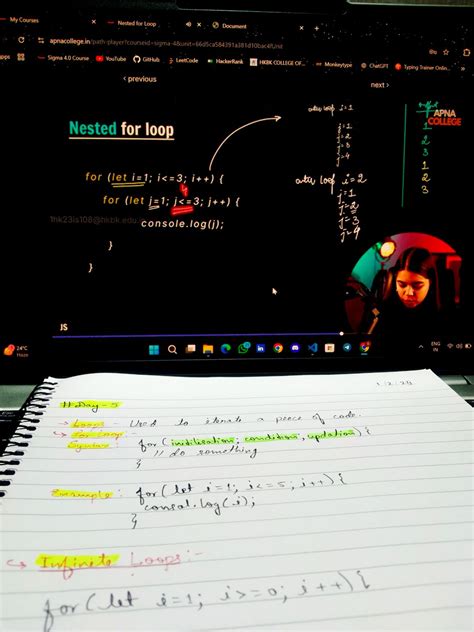 My Courses
Nested for Loop
Document
apnacollege.in/path-player?courseid=sigma-4&unit=66d5ca584391a381d10bac4fUnit
Apps
Sigma 4.0 Course
YouTube
GitHub
LeetCode
HackerRank
HKBK COLLEGE OF...
Monkeytype
ChatGPT
Typing Trainer Onlin...
‹ previous
next ›
Nested for loop
for (let i=1; i<=3; i++) {
for (let j=1; j<=3; j++) {
console.log(j);
}
}
4
outer loop i=1
j=1
j=2
j=3
j=4
outer loop i=2
j=1
j=2
j=3
j=4
APNA
COLLEGE
1
2
3
1
2
3
JS
24°C
Haze
ENG
IN
# Day - 5
Loops - Used to iterate a peece of code.
For Loop
Syntax : for (initilisation; condition; updation) {
// do something
}
Example : for (let i=1; i<=5; i++) {
consol.log(i);
}
Infinite Loops :-
for (let i=1; i>=0; i++) {